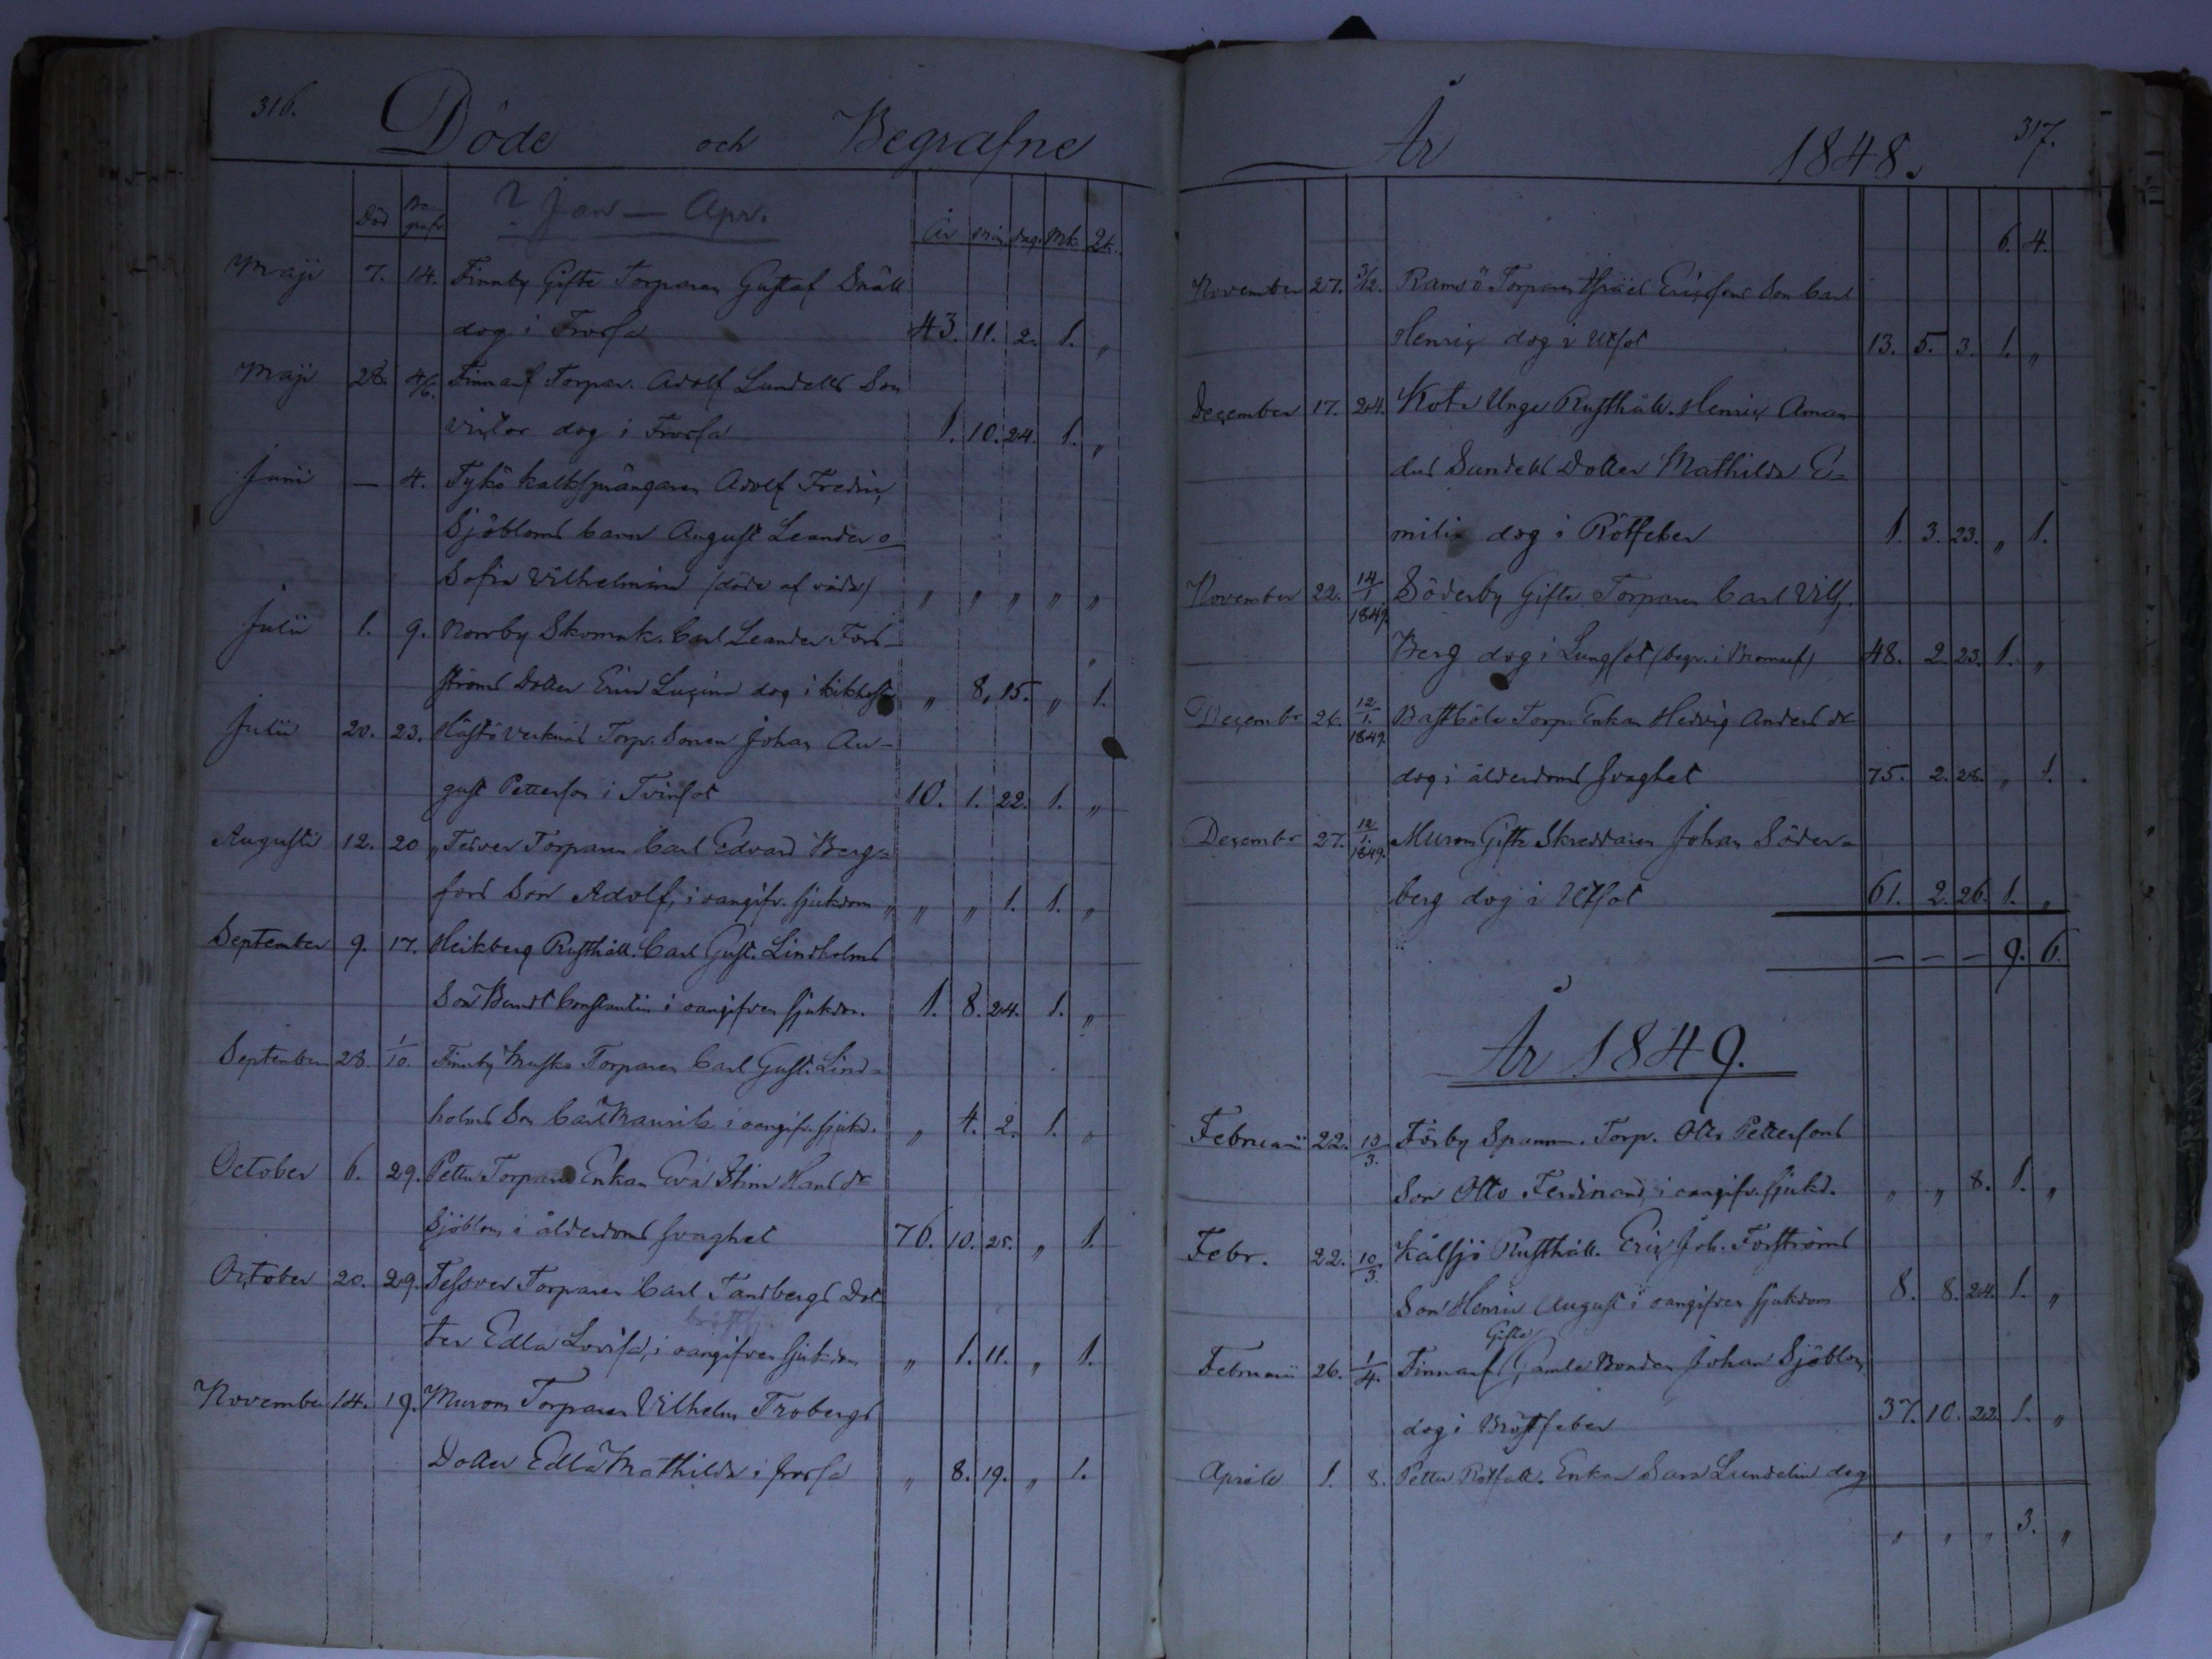 316.
Döde och Begrafne
Död Be-grafn ? Jan — Apr. År Mån. dag. Mk. Qk.
Maji 7. 14. Finnby Gifte Torparen Gustaf Snäll
dog i Frossa 43. 11. 2. 1. „
Maji 28. 4/6. Finnarf Torpar. Adolf Lundells Son
Victor dog i Frossa 1. 10. 24. 1. „
Junii — 4. Tykö kalksprängaren Adolf Fredric
Sjöbloms barn August Leander o
Sofia Vilhelmina (döde af våda) „ „ „ „ „
Julii 1. 9. Norrby Skomak. Carl Leander Fors-
ströms Dotter Erica Lucina dog i kikhosta „ 8. 15. „ 1.
Julii 20. 23. Torp. Sonen Johan Au-
gust Petterson i Tvinsot 10. 1. 22. 1. „
Augusti 12. 20 Torparen Carl Edvard Berg-
fors Son Adolf, i oangifv. sjukdom „ „ „ 1. 1. „
September 9. 17. Heikberg Rusthåll. Carl Gust. Lindholms
Son Bendt Constantin i oangifven sjukdom. 1. 8. 24. 1. „
September 28. 1/10. Finnby Torparen Carl Gust. Lind-
holms Son Carl Mauritz i oangifv. sjukd. „ 4. 2. 1. „
October 6. 29. Pettu Torpare Enkan Eva Stina Hans dr
Sjöblom i ålderdoms svaghet 76. 10. 25. „ 1.
October 20. 29. Tessver Torparen Carl Tandbergs Dot
ter Edla Lovisa, i oangifven sjukdom „ 1. 11. „ 1.
November 14. 19. Murom Torparen Vilhelm Frobergs
Dotter Edla Mathilda i frossa „ 8. 19. „ 1.
År 1848. 317.
6. 4.
November 27. 3/12. Ramsö Torparen Israel Ericssons Son Carl
Henric dog i Utsot 13. 5. 3. 1. „
December 17. 24. Unge Rusthåll. Henric Aman
dus Sandells Dotter Mathilda E-
milia dog i Rötfeber 1. 3. 23. „ 1.
November 22. 14/1 1849. Söderby Gifte Torparen Carl Vilh.
Berg dog i Lungsot (begr. i Bromarf) 48. 2. 23. 1. „
Decembr 26. 12/1. 1849. Bastböle Torp. Enkan Hedvig Anders dr
dog i ålderdoms svaghet 75. 2. 28. „ 1.
Decembr 27. 12/1. 1849. Murom Gifte Skreddaren Johan Söder-
berg dog i Utsot 61. 2. 26. 1. „
— — — 9. 6.
År 1849.
Februarii 22. 10/3. Förby Torp. Otto Pettersons
Son Otto Ferdinand, i oangifv. sjukd. „ „ 8. 1. „
Febr. 22. 10/3. Kålsjö Rusthåll. Eric Joh. Forströms
Son Henric August i oangifven sjukdom 8. 8. 24. 1. „
Gifte
Februarii 26. 1/4. Finnarf Gamle Bonden Johan Sjöblom
dog i Bröstfeber 37. 10. 22. 1. „
Aprill 1. 8. Pettu Enkan Sara Lundelin dog
„ „ „ 3. „